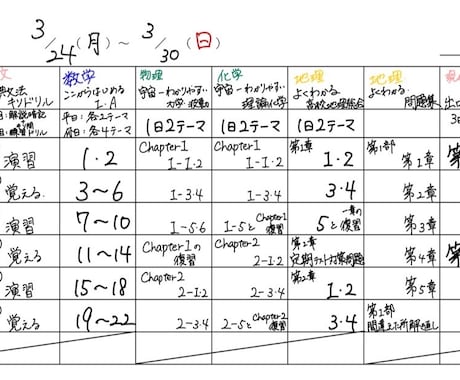 3/24(月)~3/30(日)
文 数学 物理 化学 地理 地理
ここからはじめる 宇宙一わかりやすい 宇宙一わかりやすい よくわかる よくわかる
I・A 理論化学 高校地理総合 問題集
平日:各2テーマ 1日2テーマ 1日2テーマ 1日2テーマ
演習 1・2 Chapter1 Chapter1 第1章 第1部
1-1・2 1-1・2 1・2 第1章
覚える 3~6 1-3・4 1-3・4 3・4 第2章
演習 7~10 1-5・6 1-5とChapter1の復習 5と一章の復習 第3章
覚える 11~14 Chapter1の復習 Chapter2 2-1・2 第1章 定期テスト対策問題 第4章
演習 15~18 Chapter2 2-1・2 2-3・4 第2章 1・2 第5章
覚える 19~22 2-3・4 2-5とChapter2復習 3・4 第1部 間違えた所解き直し